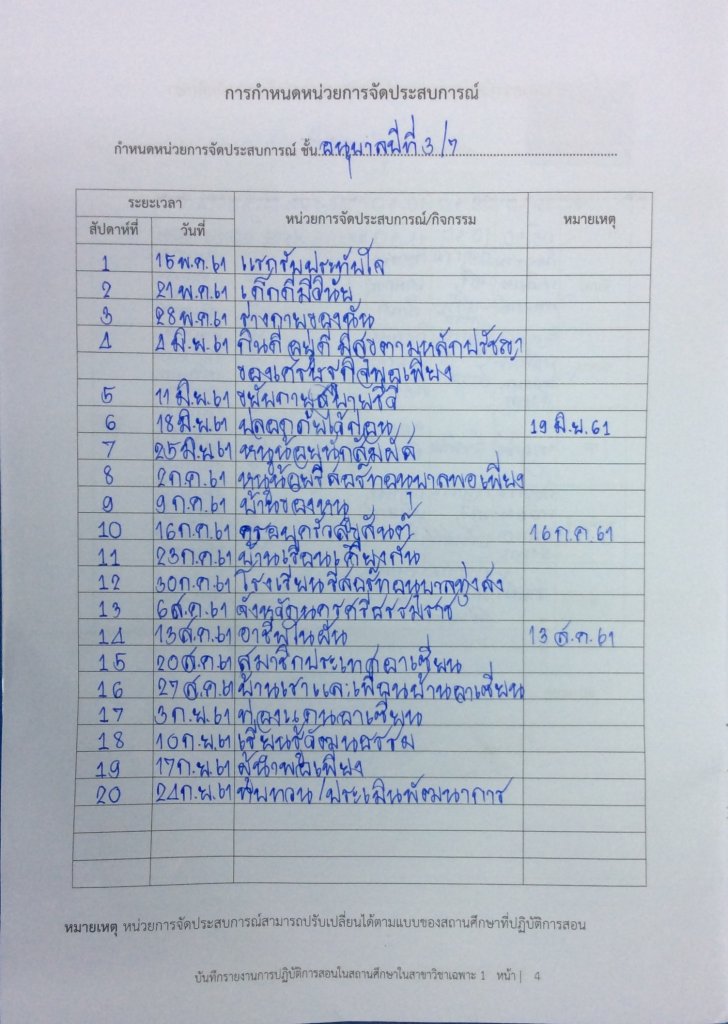 การกำหนดหน่วยการจัดประสบการณ์
กำหนดหน่วยการจัดประสบการณ์ ชั้น อนุบาลปีที่ 3/7
ระยะเวลา หน่วยการจัดประสบการณ์/กิจกรรม หมายเหตุ
สัปดาห์ที่ วันที่
1 15 พ.ค. 61 แรกรับประทับใจ
2 21 พ.ค. 61 เด็กดีมีวินัย
3 28 พ.ค. 61 ร่างกายของฉัน
4 4 มิ.ย. 61 กินดี อยู่ดี มีสุขตามหลักปรัชญา
ของเศรษฐกิจพอเพียง
5 11 มิ.ย. 61 ขยับกายสบายชีวี
6 18 มิ.ย. 61 ปลอดภัยไว้ก่อน 19 มิ.ย. 61
7 25 มิ.ย. 61 หนูน้อยนักสัมผัส
8 2 ก.ค. 61 หนูน้อยรีสอร์ทอนุบาลพอเพียง
9 9 ก.ค. 61 บ้านของหนู
10 16 ก.ค. 61 ครอบครัวสุขสันต์ 16 ก.ค. 61
11 23 ก.ค. 61 บ้านเรือนเคียงกัน
12 30 ก.ค. 61 โรงเรียนรีสอร์ทอนุบาลทุ่งสง
13 6 ส.ค. 61 จังหวัดนครศรีธรรมราช
14 13 ส.ค. 61 อาชีพในฝัน 13 ส.ค. 61
15 20 ส.ค. 61 สมาชิกประเทศอาเซียน
16 27 ส.ค. 61 บ้านเราและเพื่อนบ้านอาเซียน
17 3 ก.ย. 61 ท่องแดนอาเซียน
18 10 ก.ย. 61 เรียนรู้วัฒนธรรม
19 17 ก.ย. 61 ผู้นำพอเพียง
20 24 ก.ย. 61 ทบทวน/ประเมินพัฒนาการ
หมายเหตุ หน่วยการจัดประสบการณ์สามารถปรับเปลี่ยนได้ตามแบบของสถานศึกษาที่ปฏิบัติการสอน
บันทึกรายงานการปฏิบัติการสอนในสถานศึกษาในสาขาวิชาเฉพาะ 1 หน้า | 4